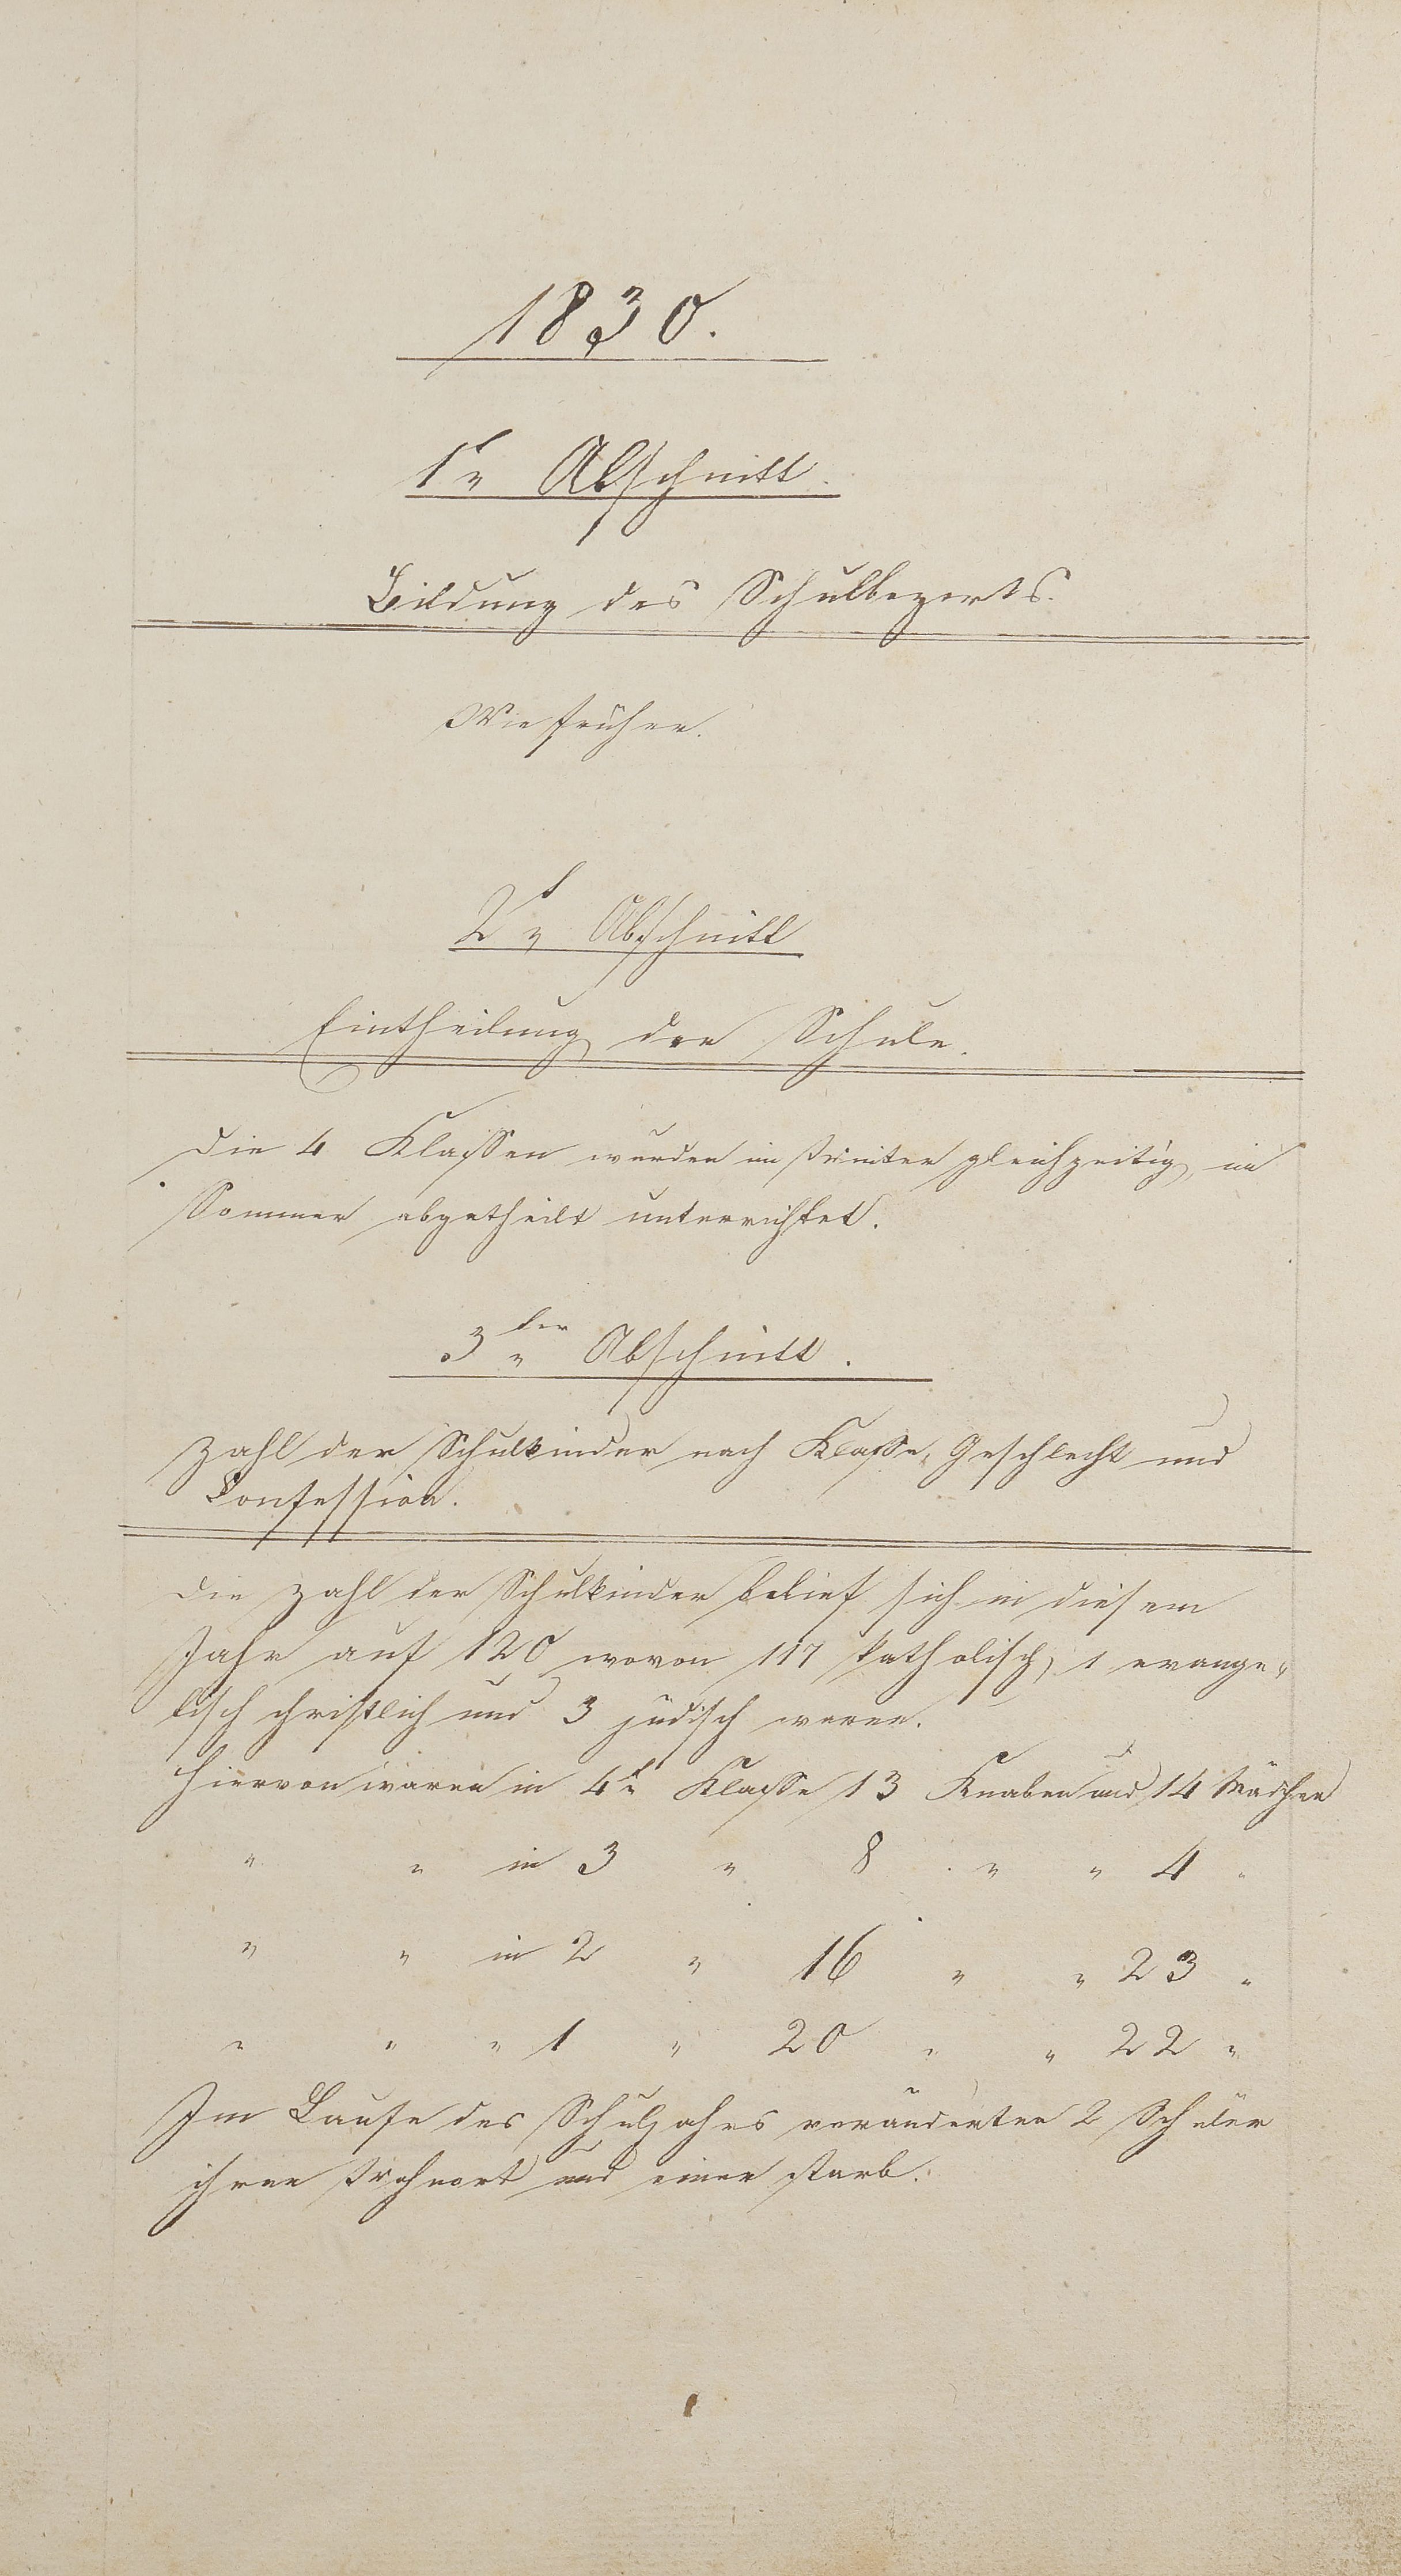 1830.
1r Abschnitt.
Bildung des Schulbezirks.
Wie früher.
2r Abschnitt
Eintheilung der Schule.
Die 4 Klassen wurden im Winter gleichzeitig, im
Sommer abgetheilt unterrichtet.
3ter Abschnitt.
Zahl der Schulkinder nach Klasse, Geschlecht und
Confession.
Die Zahl der Schulkinder belief sich in diesem
Jahr auf 120, wovon 117 katholisch, 1 evange-
lisch christlich und 3 jüdisch waren.
Hiervon waren in 4r Klasse 13 Knaben und 14 Mädchen
" " in 3 " 8 " " 4 "
" " in 2 " 16 " " 23 "
" " " 1 " 20 " " 22 "
Im Laufe des Schuljahrs veränderten 2 Schüler
ihren Wohnort und einer starb.